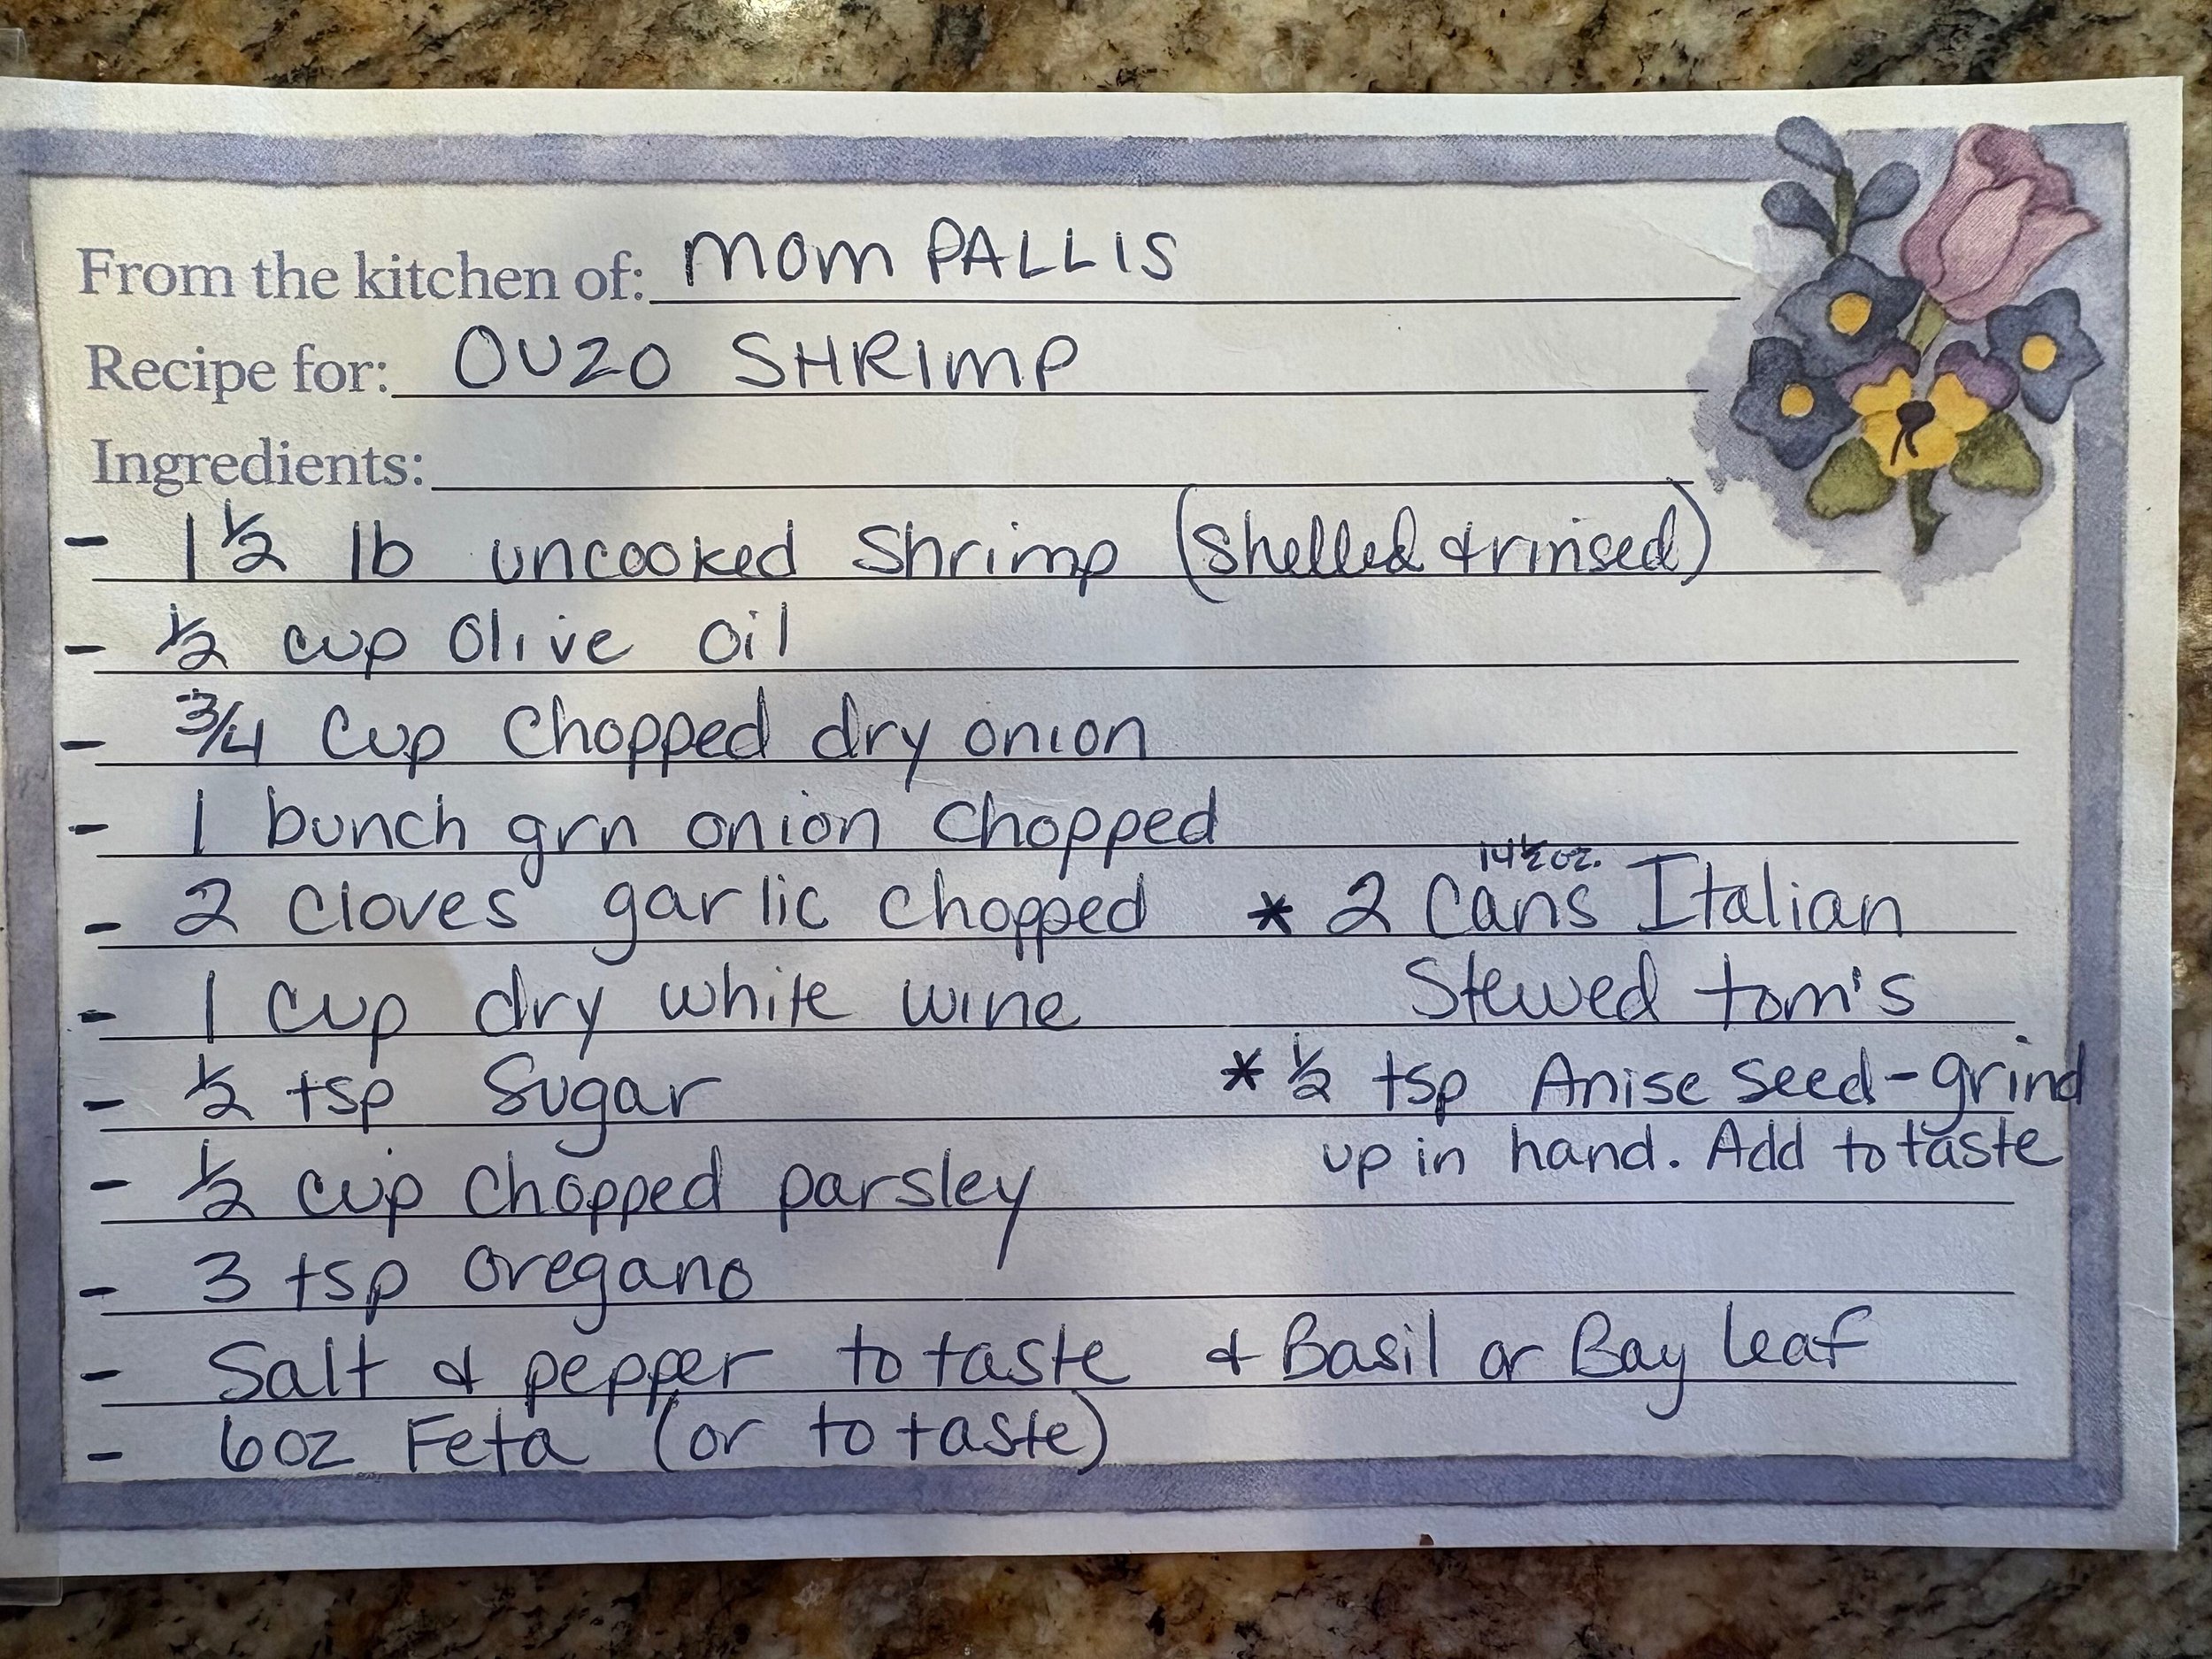 From the kitchen of: Mom PALLIS
Recipe for: OUZO SHRIMP
Ingredients:
- 1 1/2 lb uncooked Shrimp (Shelled & rinsed)
- 1/2 cup Olive Oil
- 3/4 Cup Chopped dry onion
- 1 bunch grn onion Chopped
- 2 Cloves garlic Chopped
* 2 14 1/2 oz. Cans Italian
Stewed tom's
- 1 Cup dry white wine
- 1/2 tsp Sugar
* 1/2 tsp Anise Seed - grind
up in hand. Add to taste
- 1/2 cup Chopped parsley
- 3 tsp Oregano
- Salt & pepper to taste & Basil or Bay leaf
- 6oz Feta (or to taste)